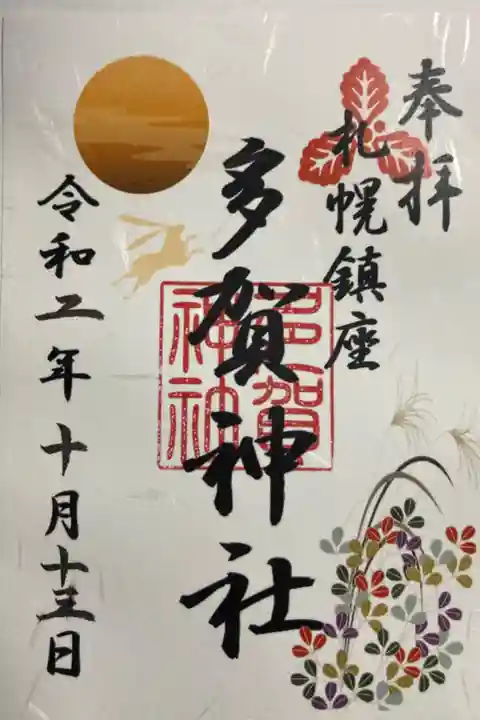 奉拝
札幌鎮座
多賀神社
多賀
神社
令和二年十月十三日